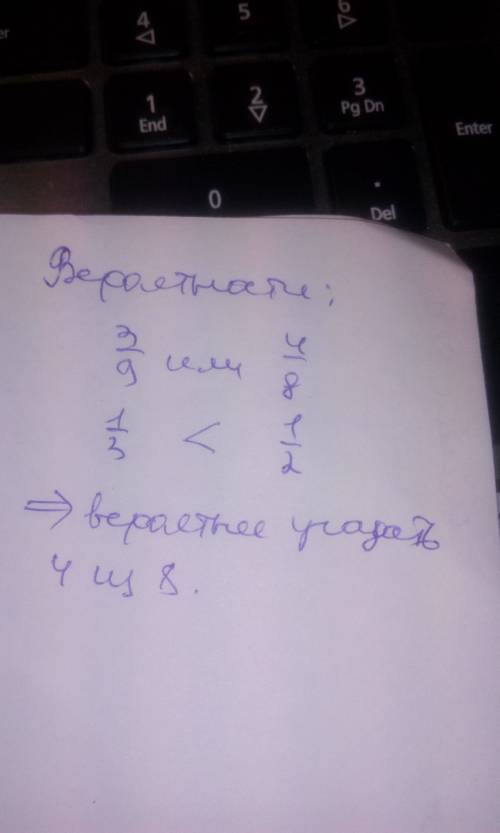 er
4
5
6
1
End
2
3
Pg Dn
Enter
0
.
Del
Вероятности:
3/9 или 4/8
1/3 < 1/2
⇒ вероятнее угадать
4 из 8.